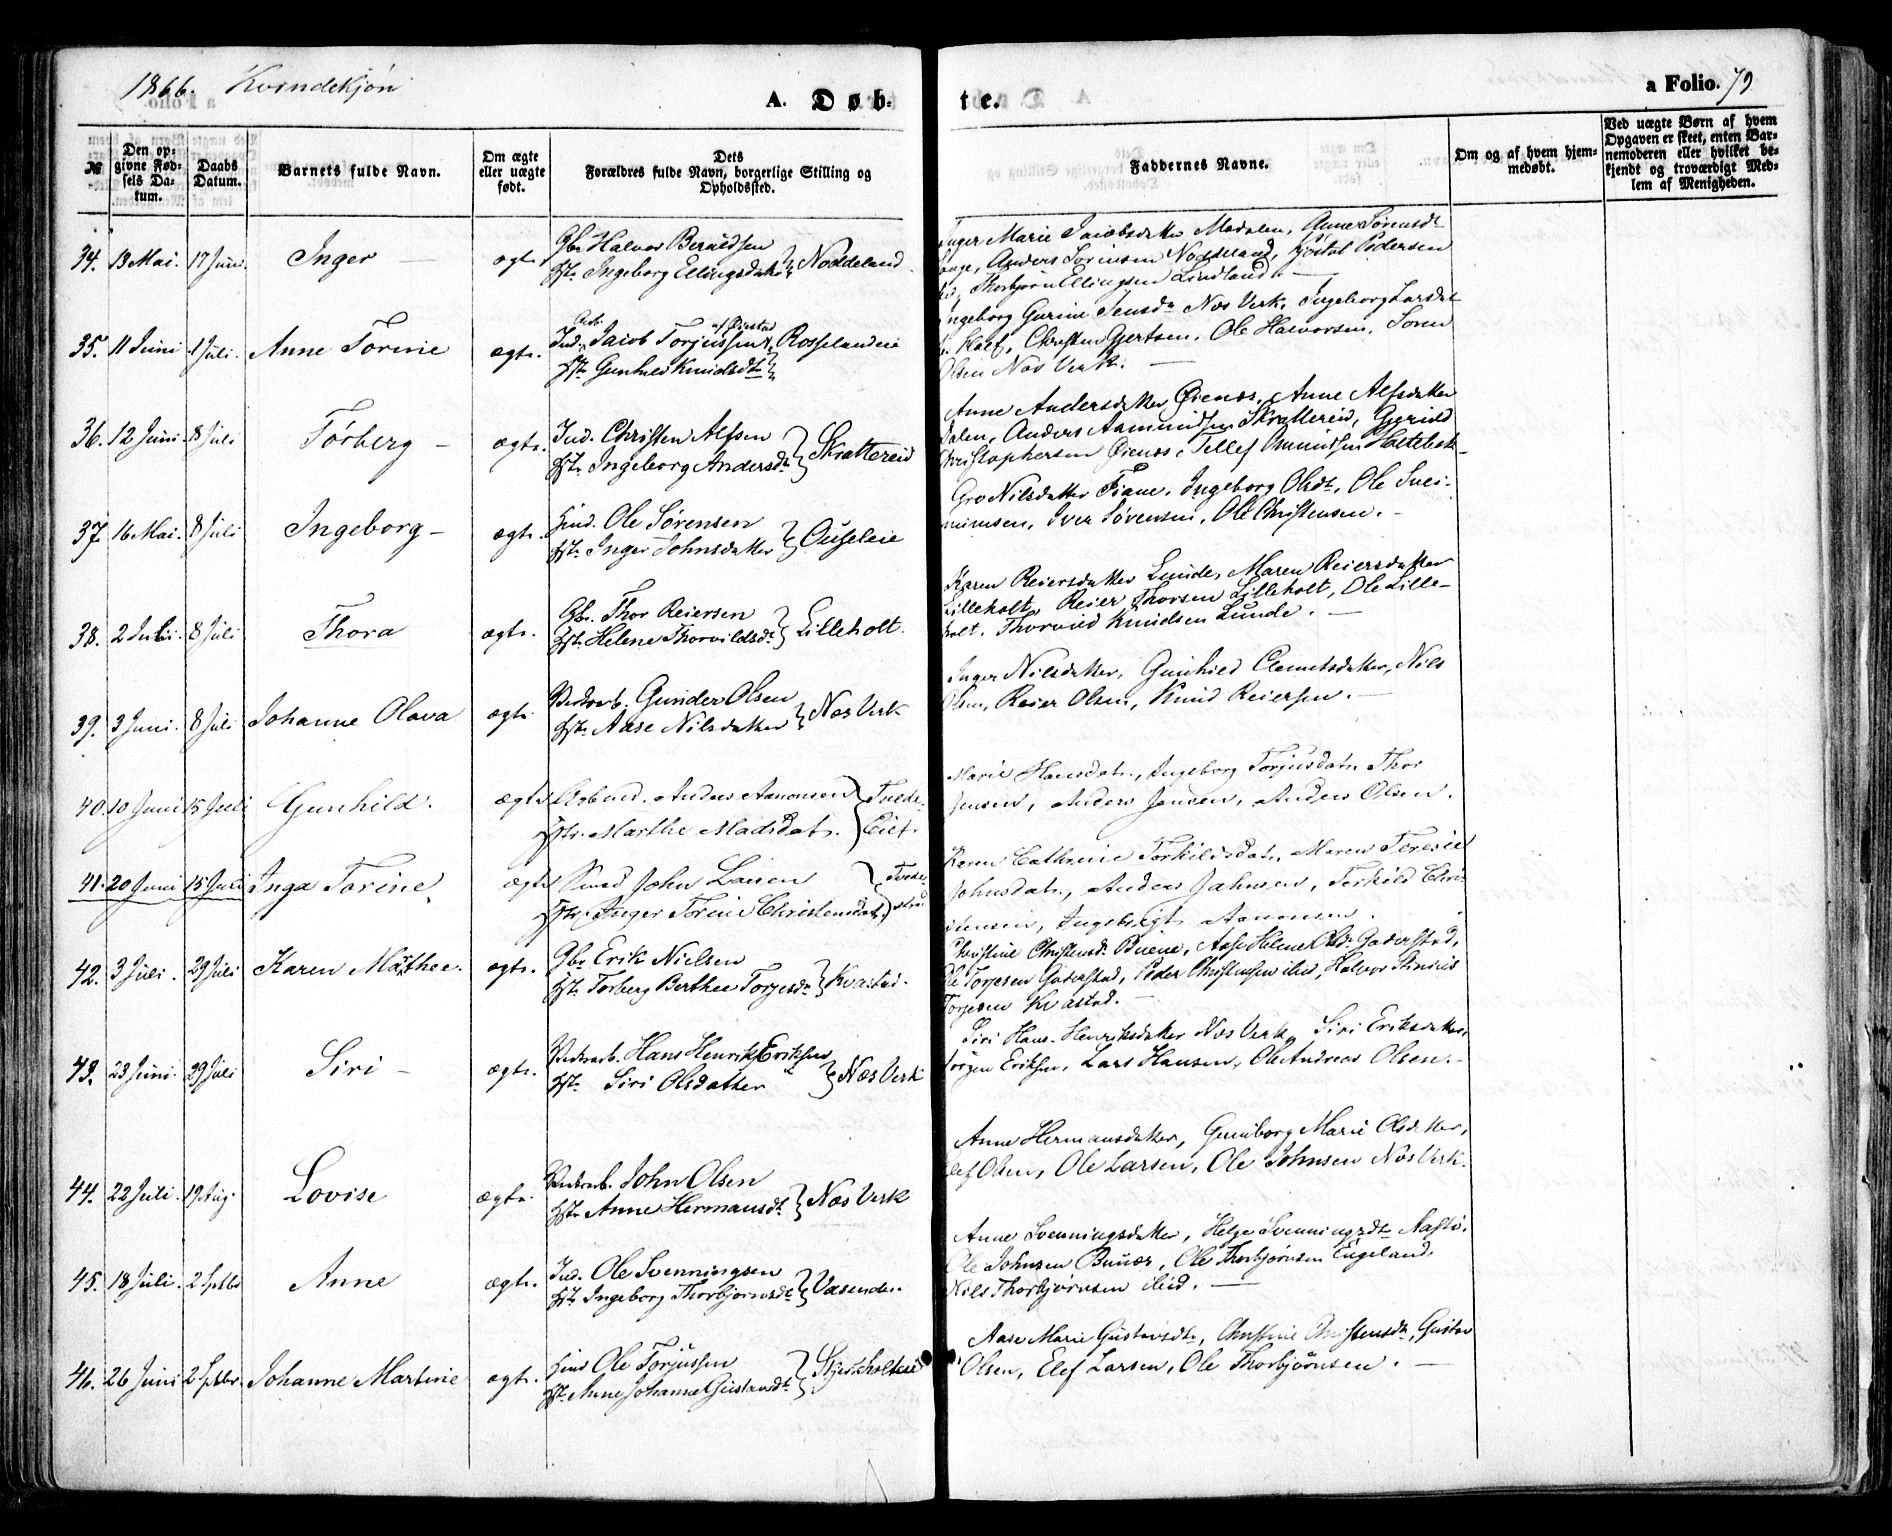 1866. Kvindekjøn
A. Døbte.
a Folio. 79
No
Den opgivne Fødsels Datum.
Daabs Datum.
Barnets fulde Navn.
Om ægte eller uægte født.
Dets Forældres fulde Navn, borgerlige Stilling og Opholdssted.
Faddernes Navne.
Om og af hvem hjemmedøbt.
Ved uægte Børn af hvem Opgaven er skeet, enten Barnemoderen eller hvilket bekjendt og troværdigt Medlem af Menigheden.
34. 13 Mai. 17 Juni. Inger — ægte.
Gbr. Halvor Beraldsen
Hst. Ingeborg Ellingsdatter } Noddeland.
Inger Marie Jacobsdatter Modalen, Anne Sørensdt
Lange, Anders Sørensen Noddeland, Kjøstol Pedersen
ibd, Thorbjørn Ellingsen Lindland. —
35. 11 Juni 1 Juli. Anne Torine ægte.
Arb. af Øiestad
Ind. Jacob Torjussen, Rosselandeie
Hst. Gunhild Knudsdt
Ingeborg Gurine Jensdt Næs Verk, Ingeborg Larsdt
Christen Gjertsen, Ole Halvorsen, Søren
Olsen Næs Verk. —
36. 12 Juni. 8 Juli Tørberg — ægte.
Ind. Christen Alfsen
Hst. Ingeborg Andersdt } Skrattereid
Anne Andersdatter Øienæs, Anne Alfsdatter
Dalen, Anders Aamundsen Skrattereid, Gjeruld
Christophersen Øienæs, Tellef Omundsen Holtebek
37. 16 Mai. 8 Juli Ingeborg — ægte.
Hmd. Ole Sørensen
Hst. Inger Johnsdatter } Ouseleie
Gro Nilsdatter Fiane, Ingeborg Olsdt, Ole Svei-
nunsen, Iver Sørensen, Ole Christensen. —
38. 2 Juli. 8 Juli Thora ægte.
Gbr. Thor Reiersen
Hst. Helene Thorvildsdt } Lilleholt.
Karen Reiersdatter Lunde, Maren Reiersdatter
Lilleholt, Reier Thorsen Lilleholt, Ole Lille-
holt, Thorvild Knudsen Lunde. —
39. 3 Juni. 8 Juli Johanne Olava ægte
Verksarb. Gunder Olsen
Hst. Aase Nilsdatter } Næs Verk
Inger Nilsdatter, Gunhild Clemetsdatter, Nils
Olsen, Reier Olsen, Knud Reiersen. —
40. 10 Juni 15 Juli Gunhild. ægte
Arbmd. Anders Aanonsen
Hstr. Marthe Madsdatr. } Tvede- Eiet.
Marie Hansdatr., Ingeborg Torjusdatr. Thor
Jensen, Anders Jensen, Anders Olsen.
41. 20 Juni 15 Juli Inga Torine. ægte
Smed John Larsen
Hstr. Inger Torine Christensdatr.
Karen Cathrine Torkildsdatr., Maren Teresie
Johnsdatr., Anders Jahnsen, Terkild Chri-
stensen, Ingebregt Aanonsen.
42. 3 Juli. 29 Juli Karen Märthee. ægte.
Gbr. Erik Nielsen
Hst. Torberg Berthee Torjesdt } Kvastad.
Christine Christensdt. Buene, Aase Helene Olsdt Gaderstad,
Ole Torjesen Gaderstad, Peder Christensen ibid, Halvor Stinius
Torjesen Kvastad. —
43. 23 Juni. 29 Juli Siri — ægte.
Verksarb. Hans Henrik Eriksen
Hst. Siri Olsdatter } Næs Verk
Siri Hans-Henriksdatter Næs Verk, Siri Eriksdatter,
Jørgen Eriksen, Lars Hansen, Ole Andreas Olsen. —
44. 22 Juli. 19 Aug. Lovise ægte.
Verksarb. John Olsen
Hst. Anne Hermansdt. } Næs Verk
Anne Hermansdatter, Gunborg Marie Olsdatter,
Elef Olsen, Ole Larsen, Ole Johnsen Næs Verk.
45. 18 Juli. 2 Septbr Anne ægte.
Ind. Ole Svenningsen
Hst. Ingeborg Thorbjørnsdt } Vasenden.
Anne Svenningsdatter, Helge Svenningsdt Aasti.
Ole Johnsen Bunæs, Ole Thorbjørnsen Engeland.
Nils Thorbjørnsen ibid. —
46. 26 Juni 2 Septbr. Johanne Martine ægte.
Hmd Ole Torjussen
Hst. Anne Johanne Gustavsdt. } Stjerholteie
Aase Marie Gustavsdt., Christine Christensdt., Gustav
Olsen, Elef Larsen, Ole Thorbjørnsen. —